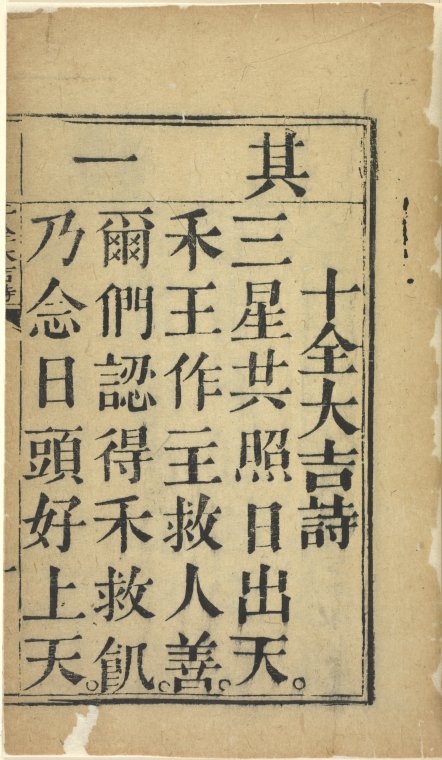 十全大吉詩
其一
三星共照日出天。
禾王作主救人善。
爾們認得禾救飢。
乃念日頭好上天。